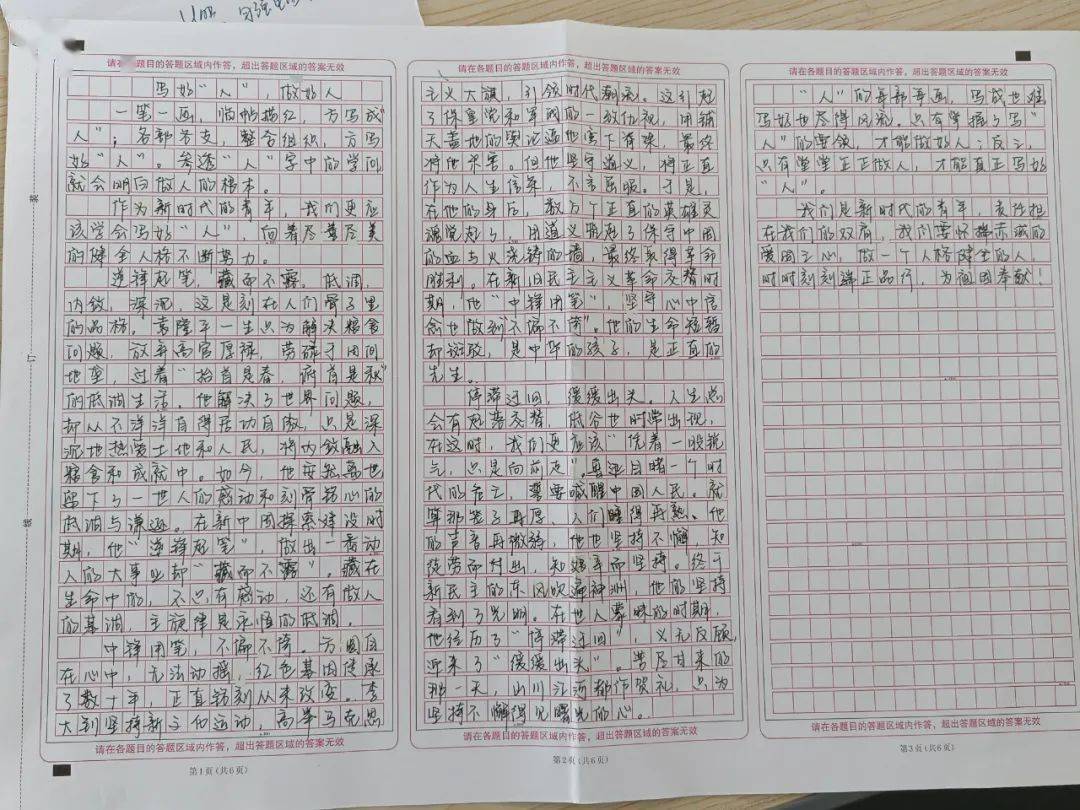 请在各题目的答题区域内作答，超出答题区域的答案无效
写好“人”，做好人
一笔一画，临帖描红，方写成“
人”；各部分支，整合组织，方写
好“人”。参透“人”字中的学问，
就会明白做人的根本。
作为新时代的青年，我们更应
该学会写好“人”，向着尽善尽美
的健全人格不断努力。
逆锋起笔，藏而不露。低调，
内敛，深沉，这是刻在人们骨子里
的品格。袁隆平一生只为解决粮食
问题，放弃高官厚禄，劳碌于田间
地里，过着“抬首是春，俯首是秋”
的低调生活。他解决了世界问题，
却从不洋洋自得居功自傲，只是深
沉地热爱土地和人民，将内敛融入
粮食和成就中。如今，他安然离世
留下了一世人的感动和刻骨铭心的
低调与谦逊。在新中国探索建设时
期，他“逆锋起笔”，做出一番动
人的大事业却“藏而不露”。藏在
生命中的，不只有感动，还有做人
的基调，主旋律是永恒的低调。
中锋用笔，不偏不倚。方圆自
在心中，无法动摇，红色基因健康
了数十年，正直镌刻从未改变。李
大钊坚持新文化运动，高举马克思
请在各题目的答题区域内作答，超出答题区域的答案无效
第1页（共6页）
请在各题目的答题区域内作答，超出答题区域的答案无效
主义大旗，引领时代潮流。这引起
了保皇党和军阀的一致仇视，用铺
天盖地的舆论逼他害下脊梁，最终
将他杀害。但他坚守道义，将正直
作为人生信条，不言屈服。于是，
在他的身后，数万个正直的英雄灵
魂觉起了，用道义唤起了保守中国
的血与火浇铸的墙，最终取得革命
胜利。在新旧民主主义革命交替时
期，他“中锋用笔”，坚守心中信
念也做到“不偏不倚”。他的生命短暂
却斑驳，是中华的孩子，是正直的
先生。
停滞迂回，缓缓出头。人生总
会有起落交替，低谷也时常出现，
在这时，我们更应该“凭着一股锐
气，只是向前走”。鲁迅目睹一个时
代的危亡，誓要喊醒中国人民。就
算那盖子再厚，人们睡得再熟，他
的声音再微弱，他也坚持不懈，知
疲劳而付出，知艰辛而坚持。终于
新民主的东风吹遍神州，他的坚持
看到了光明。在世人蒙昧的时期，
他经历了“停滞迂回”，义无反顾，
迎来了“缓缓出头”。苦尽甘来的
那一天，山川江河都作贺礼，只为
坚持不懈得见曙光的心。
请在各题目的答题区域内作答，超出答题区域的答案无效
第2页（共6页）
请在各题目的答题区域内作答，超出答题区域的答案无效
“人”的每部每画，写成也难
写好也尽得风流。只有掌握了写“
人”的要领，才能做好人；反之，
只有堂堂正正做人，才能真正写好
“人”。
我们是新时代的青年，责任担
在我们的双肩，我们要怀揣赤诚的
爱国之心，做一个人格健全的人，
时时刻刻端正品行，为祖国奉献！
请在各题目的答题区域内作答，超出答题区域的答案无效
第3页（共6页）
装
订
线